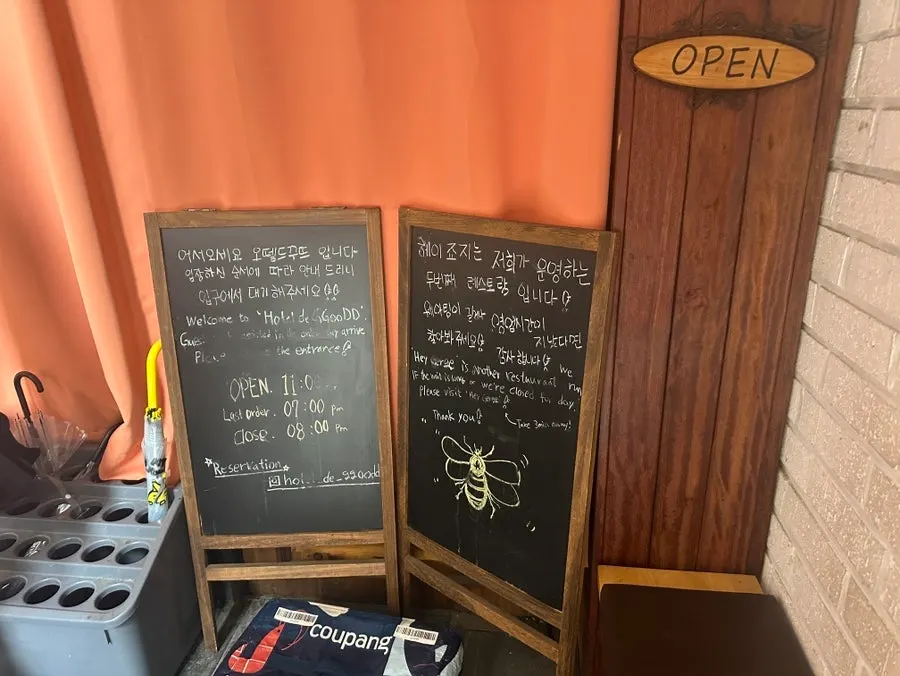 어서오세요 오뗄드꾸뜨 입니다
입장하신 순서에 따라 안내 드리니
입구에서 대기해주세요
Welcome to "Hotel de GGooDD".
in arrive
the entrance
OPEN. 11:0
Last order. 07:00 pm
Close. 08:00 pm
*Reservation*
de_ggoodd
헤이죠지는 저희가 운영하는
두번째 레스토랑 입니다
웨이팅이 길거나 영업시간이 지났다면
찾아봐주세요 감사합니다
"Hey is another restaurant we run
If the wait is long or we're closed for day,
please visit "Hey
Thank you
Take away!
OPEN
coupang